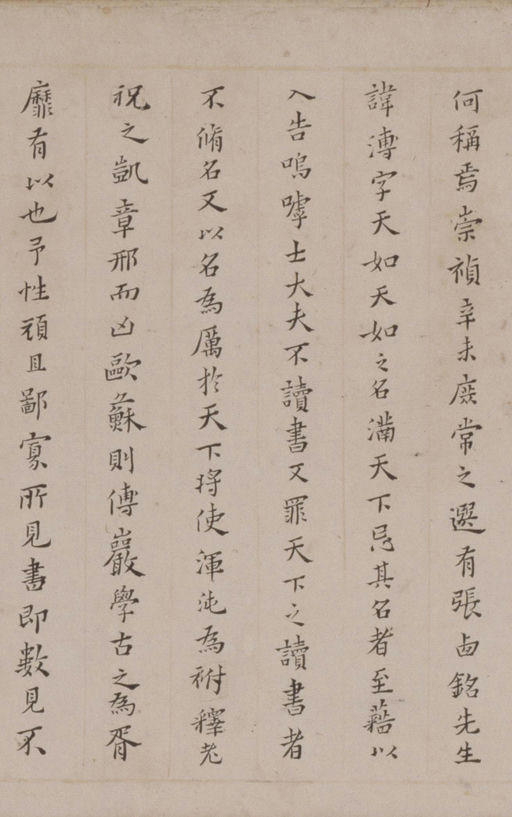 何稱焉崇禎辛未庶常之選有張卣銘先生
諱溥字天如天如之名滿天下忌其名者至藉以
入告嗚嘑士大夫不讀書又罪天下之讀書者
不脩名又以名為厲於天下將使渾沌為祔釋老
祝之凱章邢而凶歐蘇則傅巖學古之為胥
靡有以也予性頑且鄙寡所見書即數見不